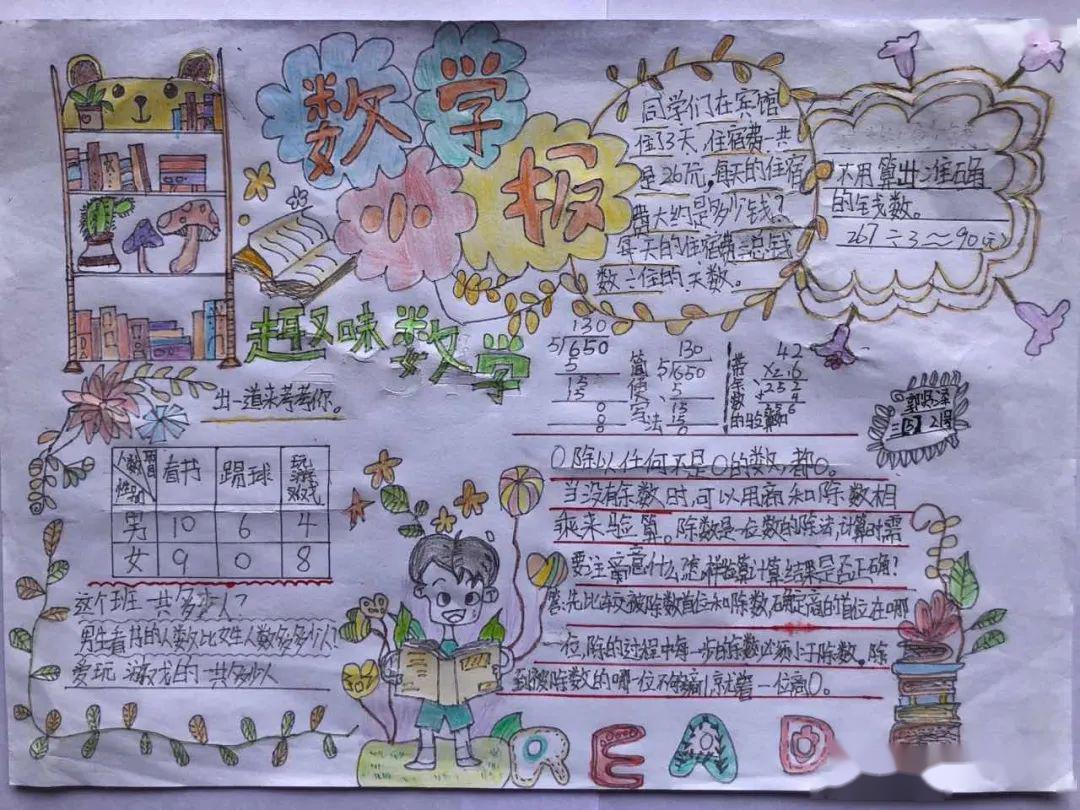 数学
小报
同学们在宾馆
住了3天,住宿费一共
是267元,每天的住宿
费大约是多少钱?
每天的住宿费=总钱
数÷住的天数。
不用算出准确
的钱数。
267÷3≈90元
趣味数学
出一道来考考你。
人数 项目 性别 看书 踢球 玩游戏
男 10 6 4
女 9 0 8
这个班一共多少人?
男生看书的人数比女生人数多多少人?
爱玩游戏的一共多少人
130
5/650
5
15
15
0
0
0
简便写法
130
5/650
5
15
15
0
带余数的验算
42
×2.6
252
三(5) 21号
0除以任何不是0的数,都0。
当没有余数时,可以用商和除数相
乘来验算。除数是一位数的除法,计算时需
要注意什么,怎样验算计算结果是否正确?
答:先比较被除数首位和除数,确定商的首位在哪
一位,除的过程中每一步的余数必须小于除数。除
到被除数的哪一位不够商1,就在那一位商0。
READ